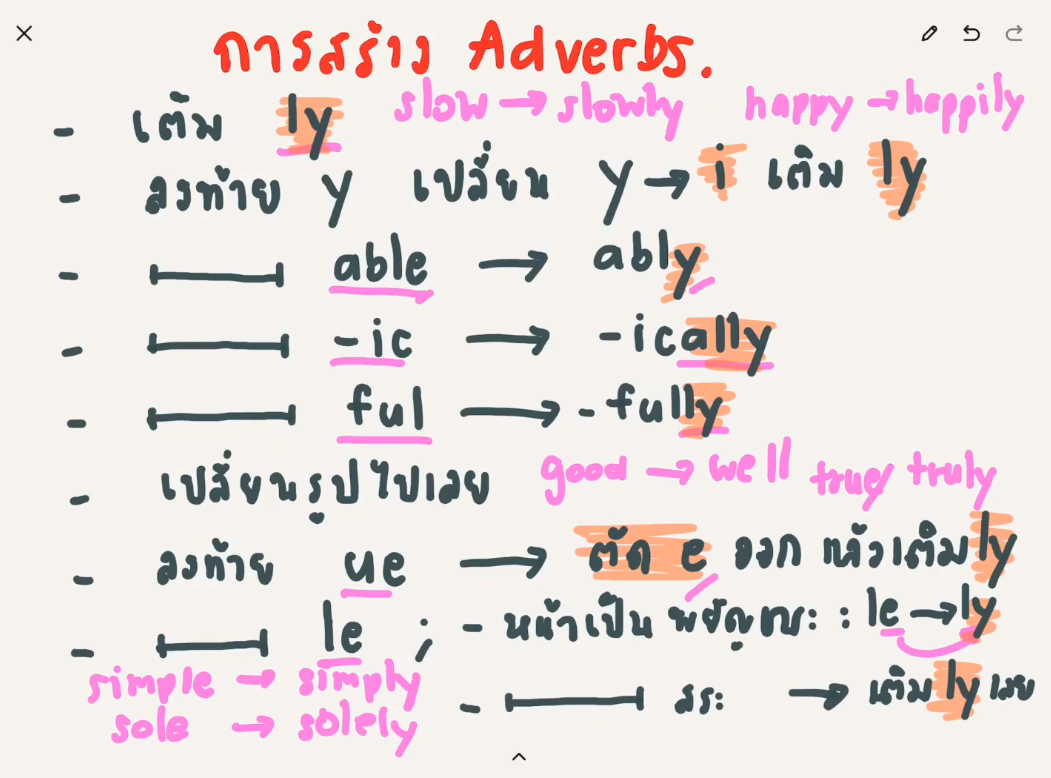 การสร้าง Adverbs.
- เติม ly slow → slowly happy → happily
- ลงท้าย y เปลี่ยน y → i เติม ly
- able → ably
- -ic → -ically
- ful → -fully
- เปลี่ยนรูปไปเลย good → well true/truly
- ลงท้าย ue → ตัด e ออก แล้วเติม ly
- le ; - หน้าเป็น พยัญชนะ : le → ly
simple → simply - สระ → เติม ly เลย
sole → solely